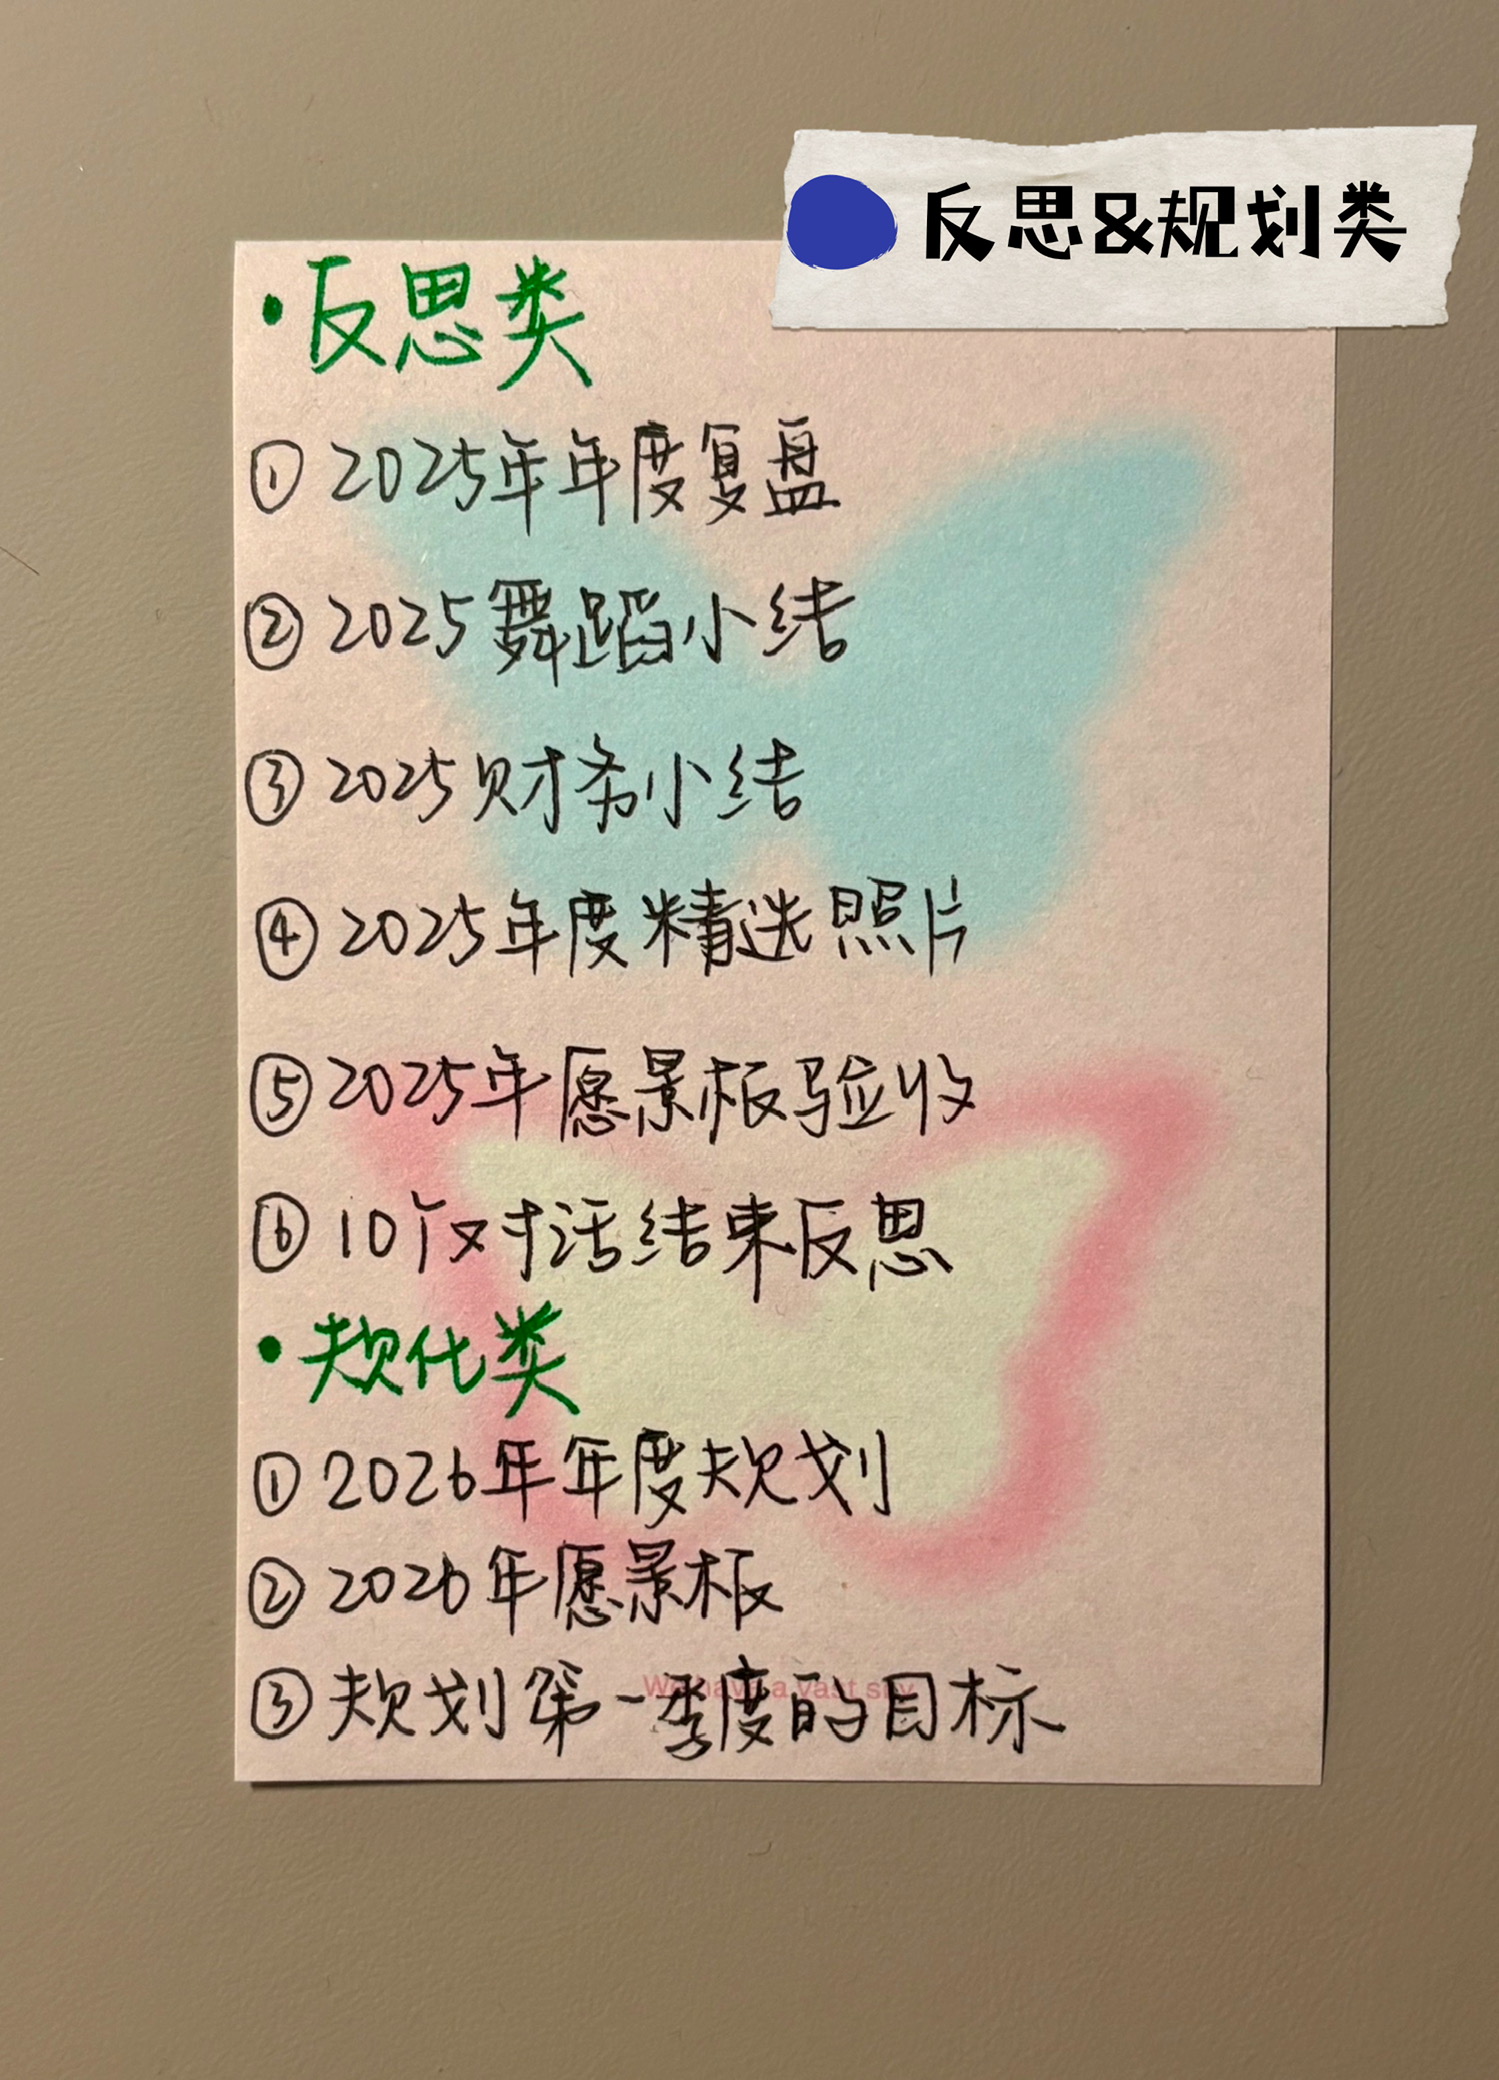 反思&规划类
·反思类
① 2025年年度复盘
② 2025舞蹈小结
③ 2025财务小结
④ 2025年度精选照片
⑤ 2025年愿景板验收
⑥ 10个对话结束反思
·规化类
① 2026年年度规划
② 2026年愿景板
③ 规划第一季度的目标
We have a vast sky